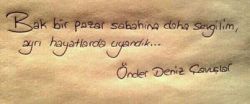 Bak bir pazar sabahına daha sevgilim,
ayrı hayatlarda uyandık...
Önder Deniz Çavuşlar